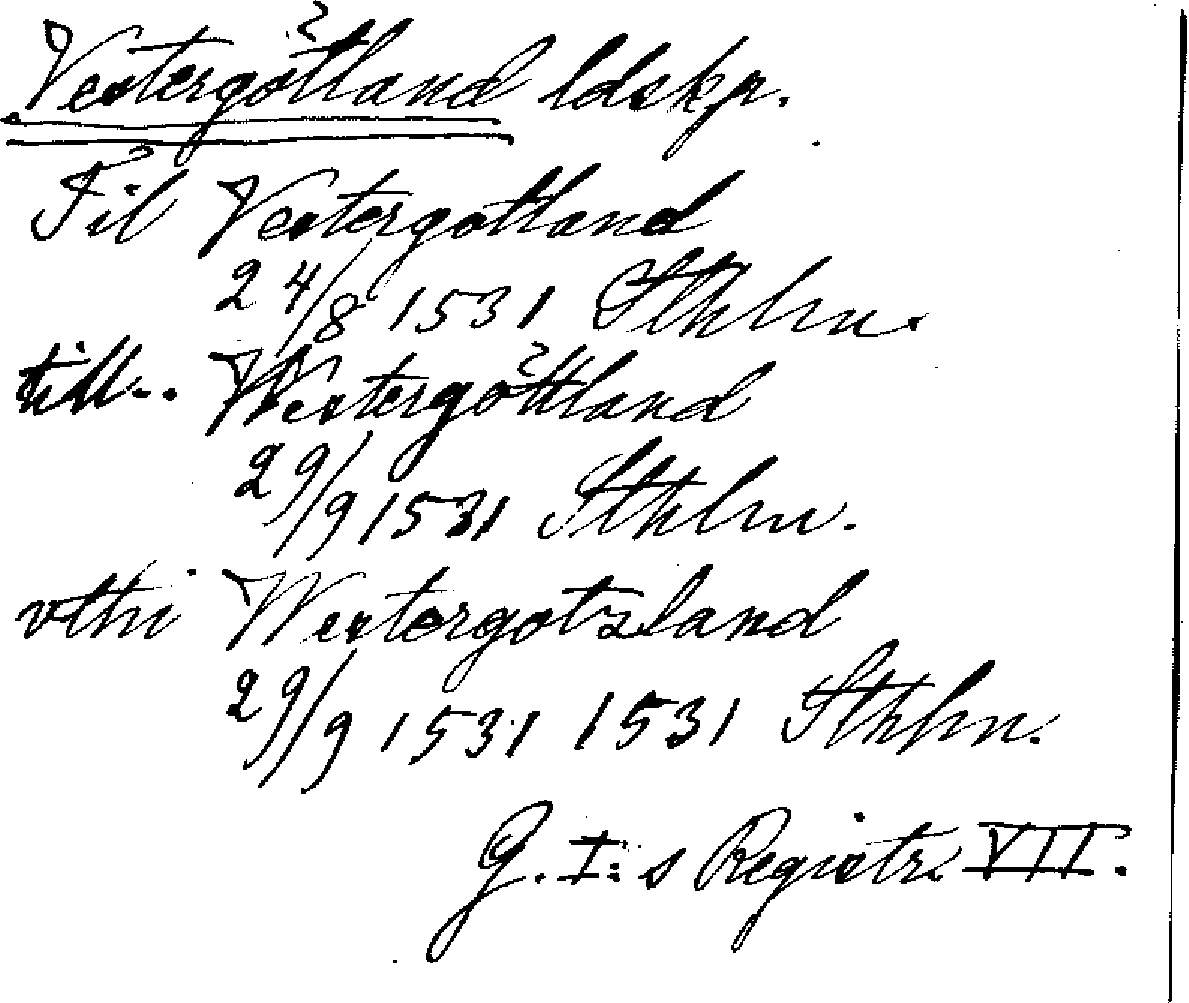 Vestergötland ldskp.
Til Vestergotland
24/8 1531 Sthlm.
till.. Westergöttland
29/9 1531 Sthlm.
vthi Westergotzland
29/9 1531 1531 Sthlm.
G. I:s Registr. VII.